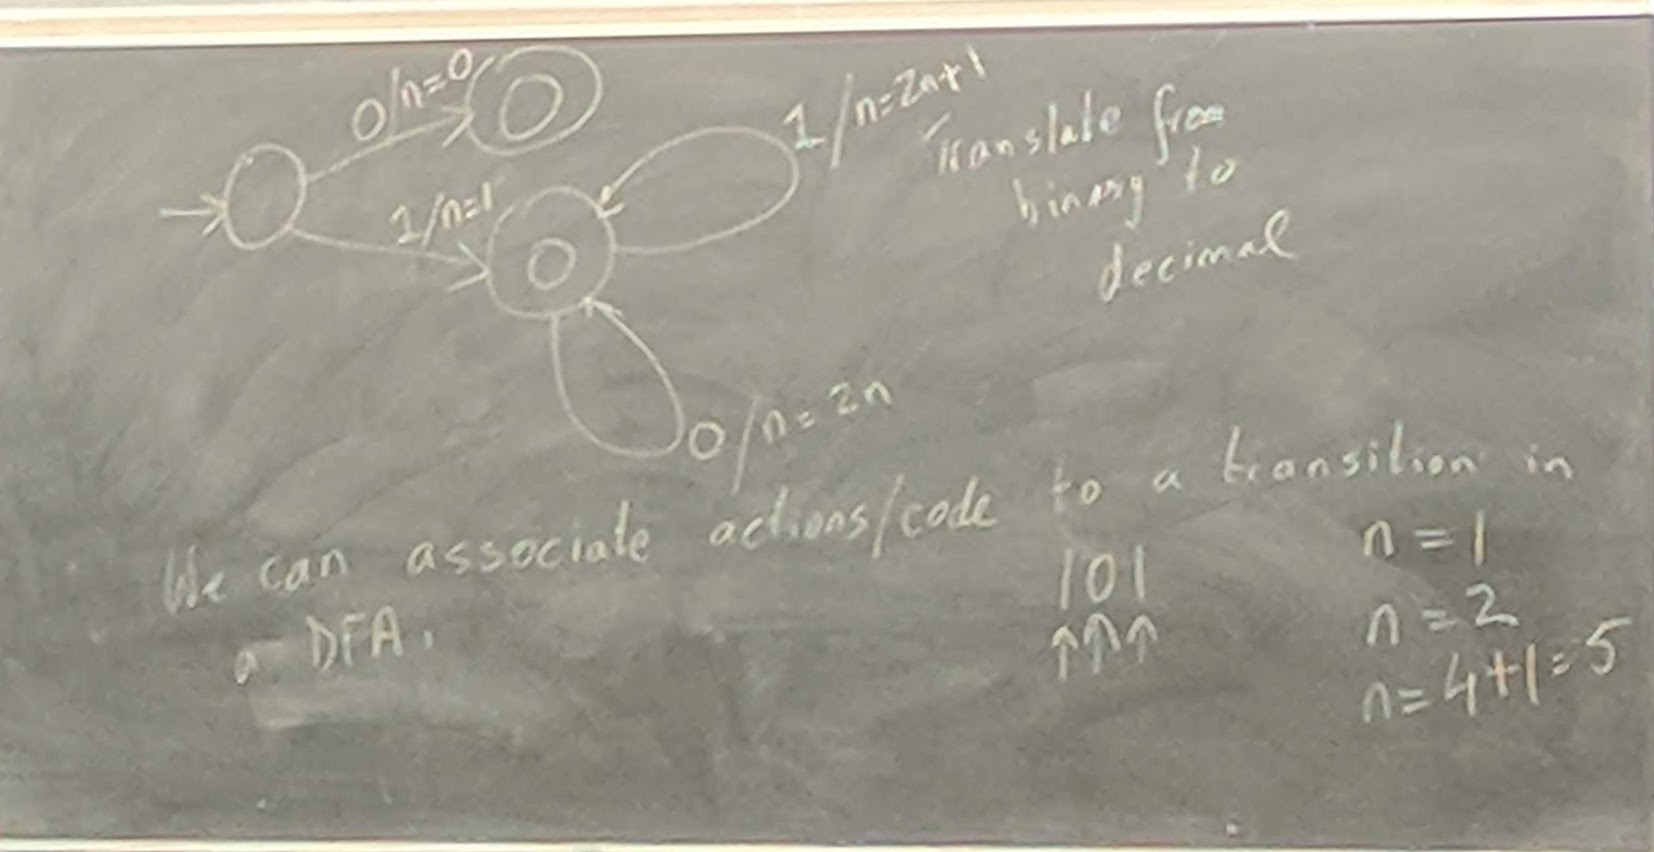 0/n=0
1/n=1
1/n=2n+1
Translate from
binary to
decimal
0/n=2n
We can associate actions/code to a transition in
a DFA.
101
↑↑↑
n=1
n=2
n=4+1=5